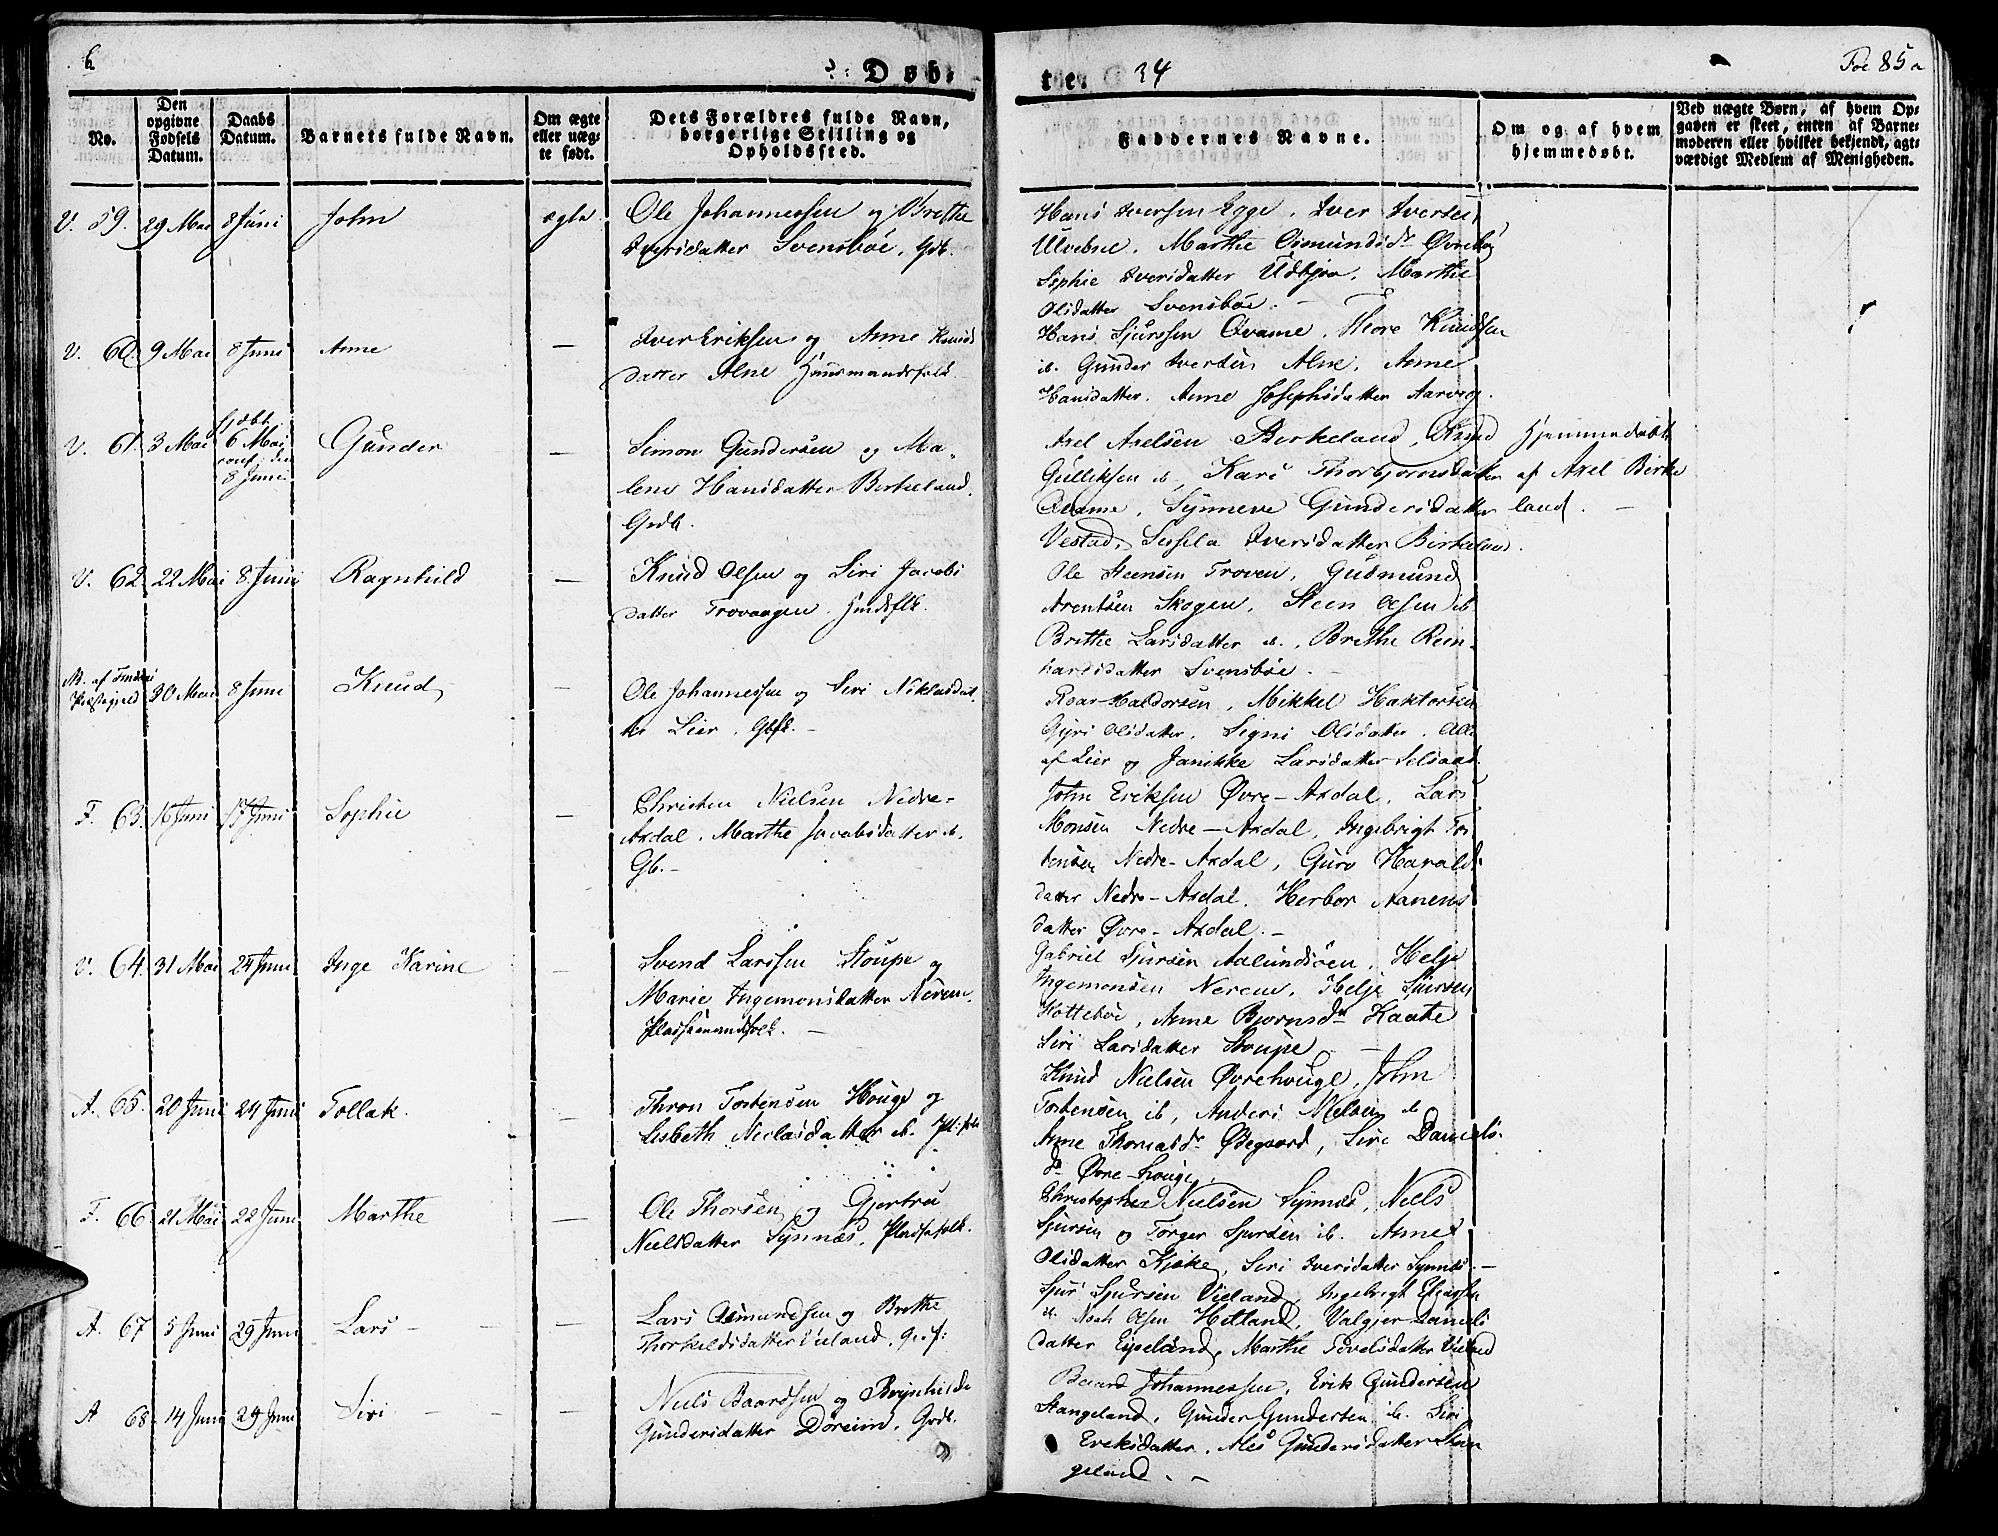 6
Døb-
te.
34
Foe 85a
No.
Den opgivne Fødsels Datum.
Daabs Datum.
Barnets fulde Navn.
Om ægte eller uæg-
te født.
Dets Forældres fulde Navn,
borgerlige Stilling og
Opholdssted.
Faddernes Navne.
Om og af hvem
hjemmedøbt.
Ved uægte Børn, af hvem Op-
gaven er skeet, enten af Barne-
moderen eller hvilket bekjendt, agt-
værdigt Medlem af Menigheden.
V. 59. 29 Mai 8 Juni John ægte Ole Johannessen og Brethe
Iversdatter Svensbøe, Gdb.
Hans Iversen Egge, Iver Iversen
Marthe Osmundsdr
Sophie Iversdatter Marthe
Olsdatter Svensbøe. -
V. 60. 9 Mai 8 Juni Anne — Iver Eriksen og Anne Knuds
datter Alne Huusmandsfolk.
Hans Sjursen Qvame, Thore Knudsen
ib. Gunder Iversen Alne, Anne
Hansdatter. Anne Josephsdatter Aarvog.
V. 61. 3 Mai hjdbt. 6 Mai conf: den 8 Juni Gunder — Simon Gundersen og Ma-
lene Hansdatter Birkeland.
Grdb.
Axel Axelsen Birkeland, Knud Hjemmedøbt
Gulliksen ib, Kari Thorbjørnsdatter af Axel Birke
Qvame, Synneve Gundersdatter land. -
Vestad, Sissela Iversdatter Birkeland.
V. 62. 22 Mai 8 Juni Ragnhild — Knud Olsen og Siri Jacobs
datter Trovaagen.
Ole Steensen Troven, Gudmund
Arentsen Skogen, Steen Olsen ib.
Brithe Larsdatter ib., Brethe Rein-
hardsdatter Svensbøe -
Præstegjeld 30 Mai 8 Juni Knud — Ole Johannessen og Siri Niklasdat
ter Lier, Gbfk. -
Roar Haldorsen, Mikkel Haktorsen
Gyri Olsdatter, Signi Olsdatter. Alle
af Lier og Janikke Larsdatter
F. 63. 16 Juni 17 Juni Sophie — Christen Nielsen Nedre-
Axdal, Marthe Jacobsdatter ib.
Gb. -
John Eriksen Øvre-Axdal, Lars
Monsen Nedre-Axdal, Ingebrigt Tor
tensen Nedre-Axdal, Guro Harald-
datter Nedre-Axdal. Herbor Aanens
datter Øvre-Axdal. -
V. 64. 31 Mai 24 Juni Inge Karine — Svend Larssen Stoupe og
Marie Ingemonsdatter Nerem.
Pladsemandsfolk. —
Gabriel Sjursen Aalundsøen, Helje
Ingemonsen Nerem, Helje Sjursen
Kottebøe, Anne Bjørnsdr Kaate
Siri Larsdatter Stoupe -
A. 65. 20 Juni 24 Juni Tollak. — Thron Torbensen Houge og
Lisbeth Niclasdatter ib.
Knud Nielsen Øvrehouge, John
Torbensen ib, Anders Nielsen ib
Anne Thomasdr Ødegaard, Siri Daniels-
dr Øvre-houge
F. 66. 21 Mai 22 Juni Marthe — Ole Thorsen og Gjertru
Nielsdatter Synnæs, Pladsefolk.
Christopher Nielsen Synnæs, Niels
Sjursen og Torger Sjursen ib. Anne
Olsdatter Kjøke, Siri Iversdatter Synnæs. -
A. 67 5 Juni 29 Juni Lars — Lars Osmundsen og Brethe
Thorkeldsdatter Vieland, G: f:
Sjur Sjursen Vieland, Ingebrigt
ib. Noah Olsen Hetland, Valgjer Daniels
datter Eyeland, Marthe Povelsdatter Vieland
A 68. 14 Juni 29 Juni Siri - — Niels Baardsen og Brynhilde
Gundersdatter Doreim. Grdb.
Baard Johannessen, Erik Gundersen
Stangeland, Gunder Gundersen ib. Siri
Eriksdatter. Ales Gundersdatter Stan
geland. -